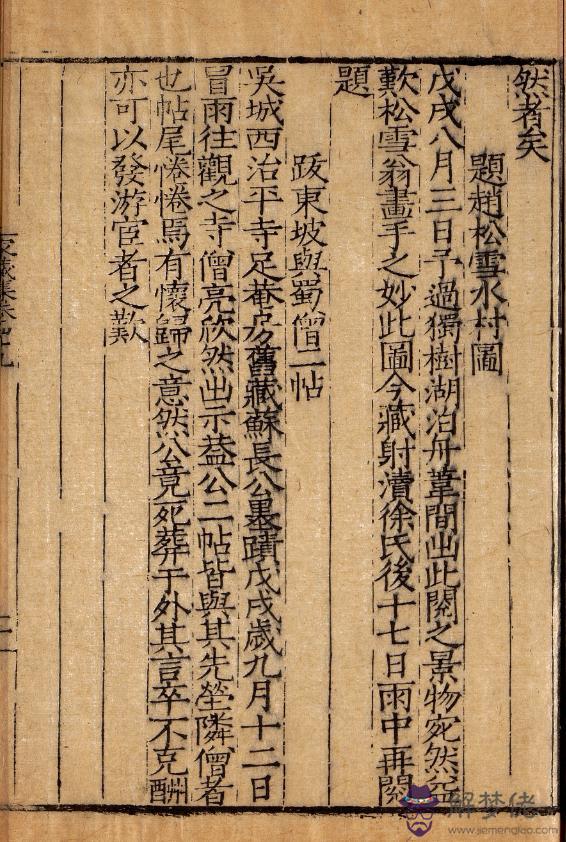 然者矣
題趙松雪水村圖
戊戌八月三日予過獨樹湖泊舟葦間出此閱之景物宛然益
歎松雪翁畫手之妙此圖今藏射瀆徐氏後十七日雨中再閱
題
跋東坡與蜀僧二帖
吳城西治平寺足菴房舊藏蘇長公墨蹟戊戌歲九月十二日
冒雨往觀之寺僧亮欣然出示葢公二帖皆與其先塋隣僧者
也帖尾惓惓焉有懷歸之意然公竟死葬于外其言卒不克酬
亦可以發游宦者之歎
解梦佬
www.jiemenglao.com